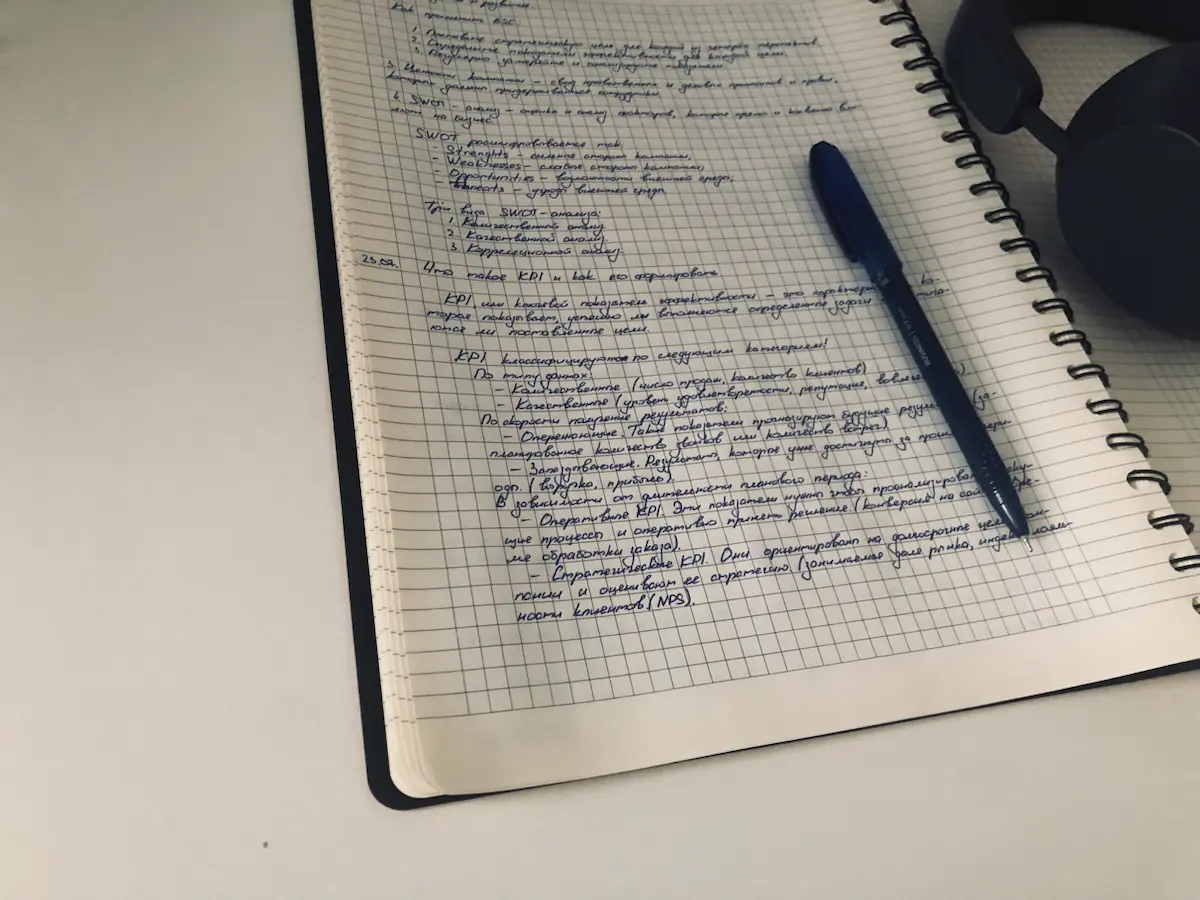 и развитие
Как применить BSC:
1. Поставьте стратегическую цель для каждой из четырех перспектив.
2. Определите показатели эффективности для каждой цели.
3. Регулярно замеряйте и анализируйте
3. Ценности компании – свод нравственных и деловых принципов и правил,
которых должны придерживаться сотрудники.
4. SWOT – анализ – оценка и анализ факторов, которые прямо и косвенно вли-
яют на бизнес.
SWOT расшифровывается так:
– Strenghts – сильные стороны компании;
– Weaknesses – слабые стороны компании;
– Opportunities – возможности внешней среды;
– угрозы внешней среды.
Три вида SWOT-анализа:
1. Количественный анализ
2. Качественный анализ
3. Коррелеционный анализ.
23.07. Что такое KPI и как его формировать
KPI или ключевой показатель эффективности – это ко-
торая показывает, успешно ли выполняются определенные задачи
ются ли поставленные цели.
KPI классифицируются по следующим категориям:
По типу данных:
– Количественные (число продаж, количество клиентов)
– Качественные (уровень удовлетворенности, репутация,
По скорости получения результатов:
– Опережающие. Такие показатели прогнозируют будущие (за-
планированное количество звонков или количество встреч)
– Запаздывающие. Результаты, которые уже достигнуты за
оды. (выручка, прибыль).
В зависимости от длительности планового периода:
– Оперативные KPI. Эти показатели нужны чтобы проанализировать
щие процессы и оперативно принять решение. (конверсия на
мя обработки заказа).
– Стратегические KPI. Они ориентированы на долгосрочные цели
пании и оценивают ее стратегию (занимаемая доля рынка,
ности клиентов (NPS).
BUSINESS